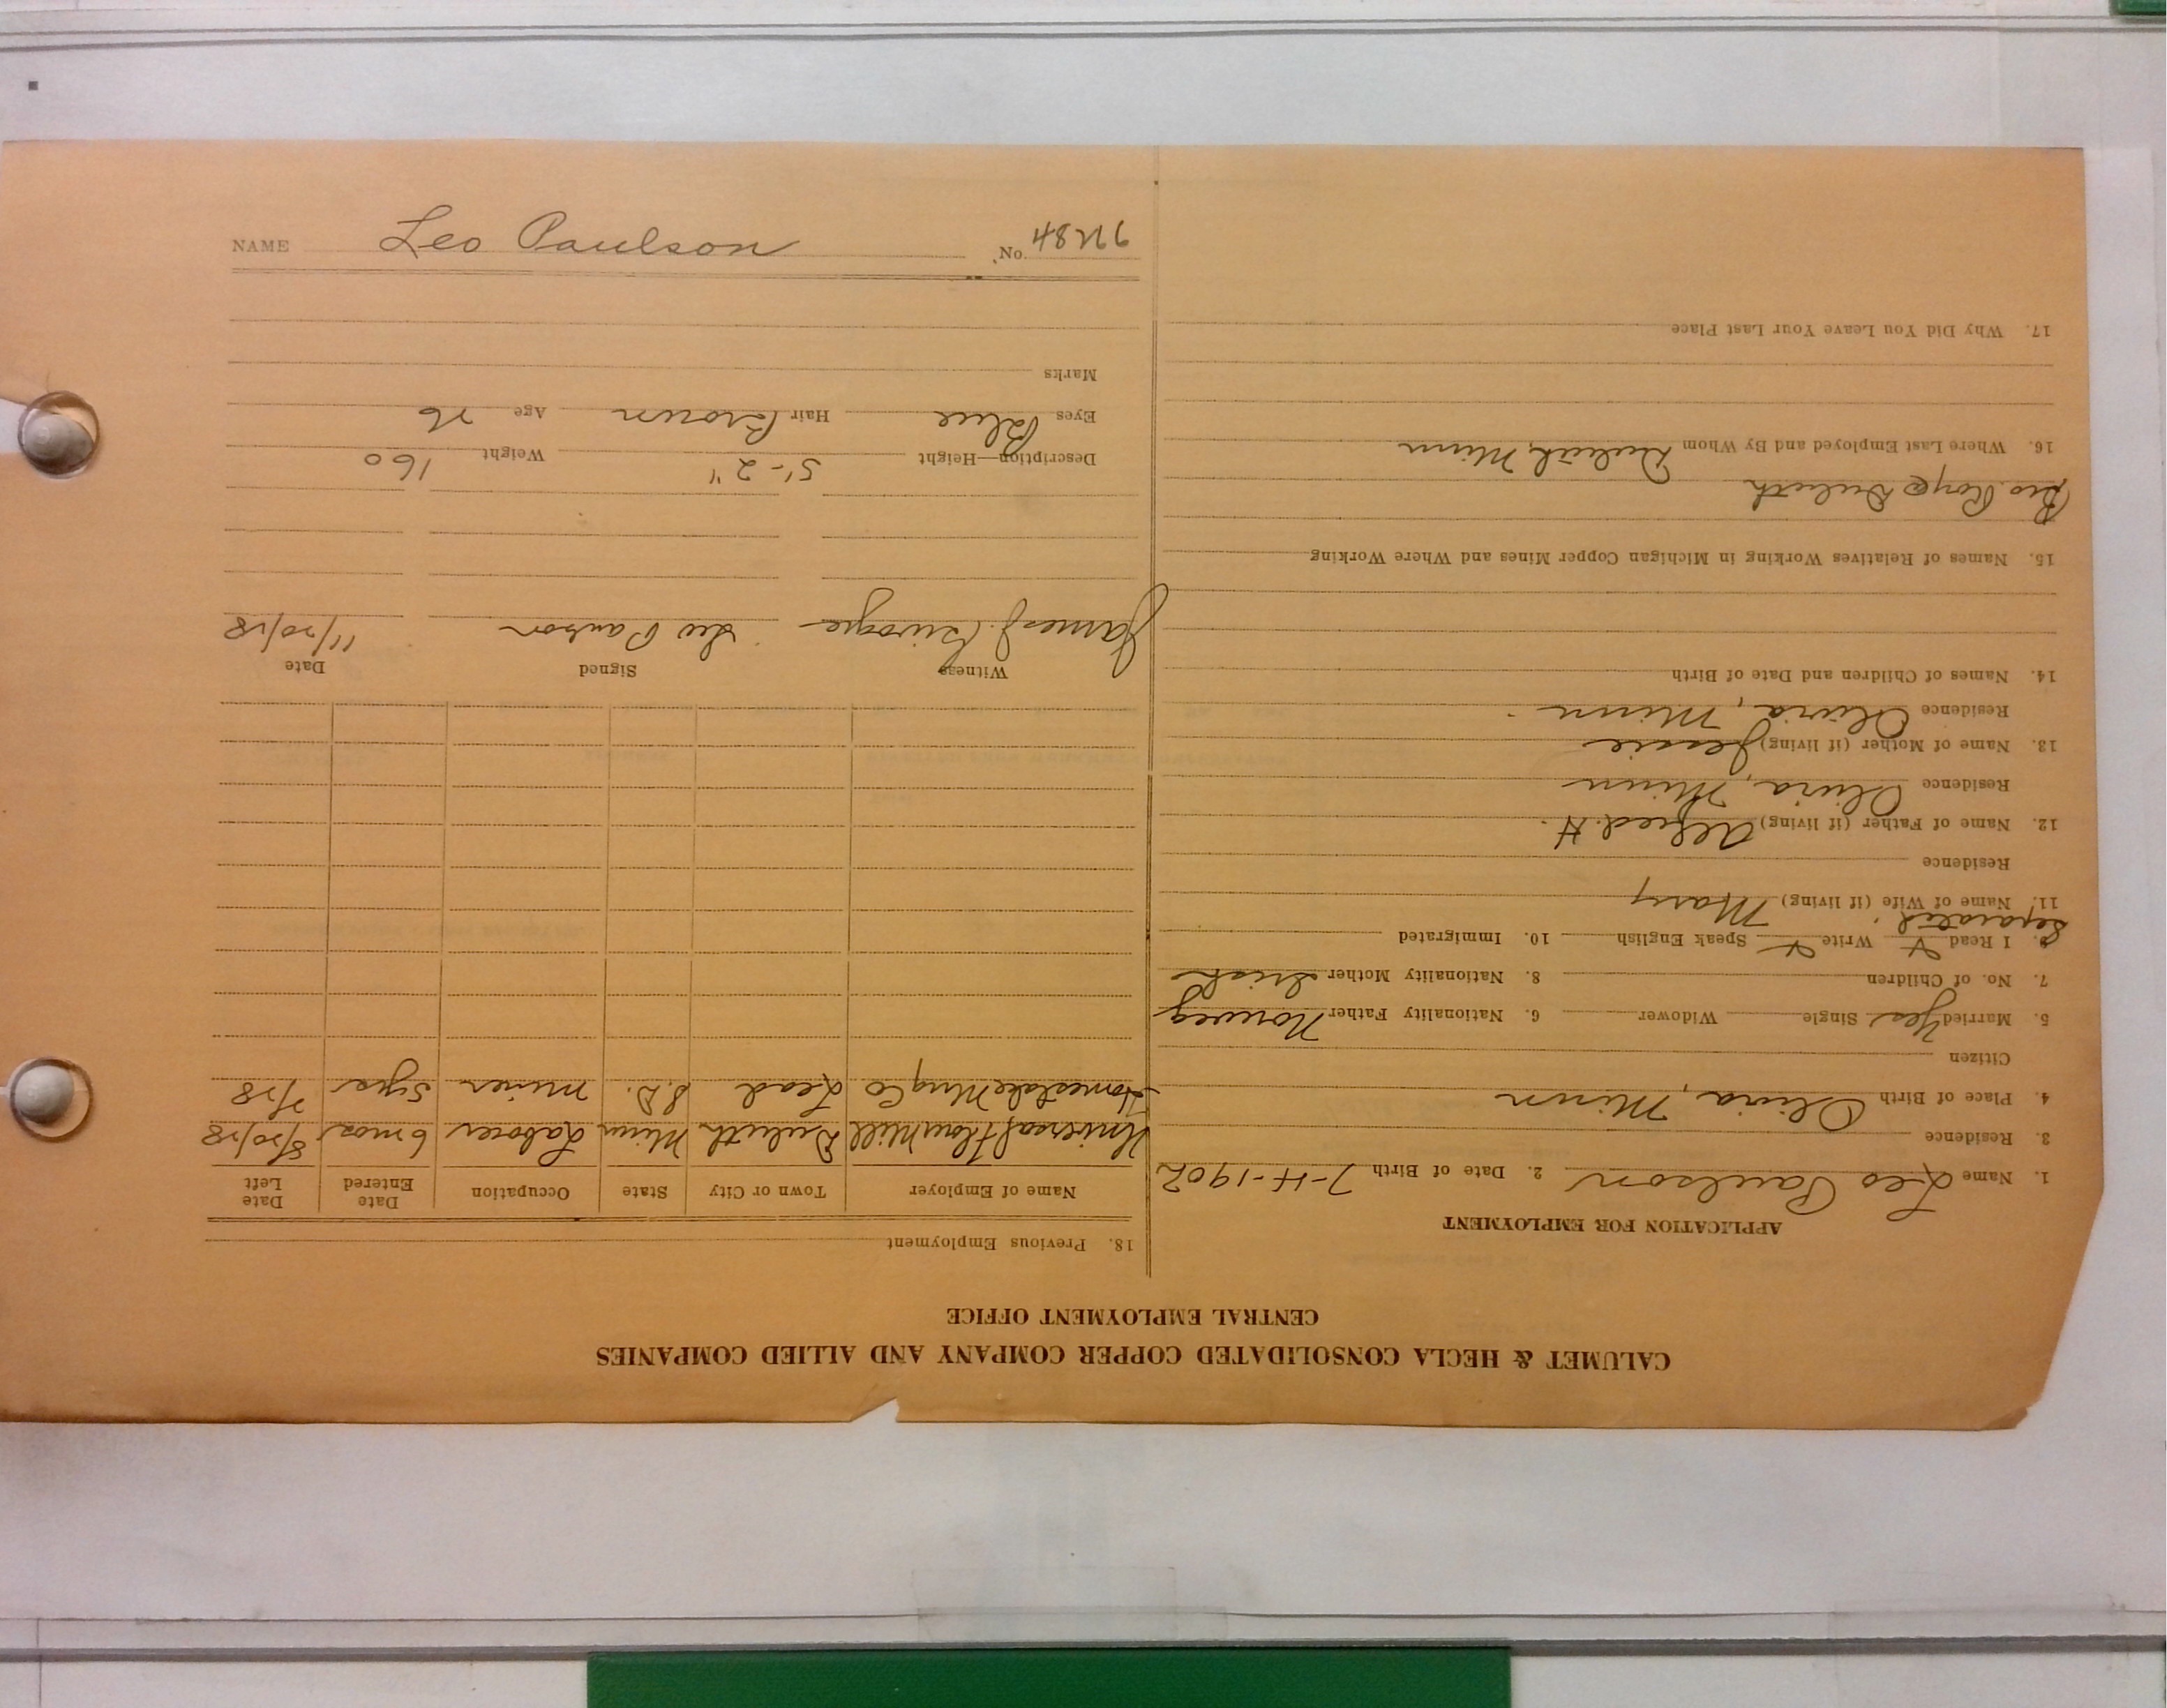 CALUMET & HECLA CONSOLIDATED COPPER COMPANY AND ALLIED COMPANIES
CENTRAL EMPLOYMENT OFFICE
APPLICATION FOR EMPLOYMENT
1. Name Leo Paulson 2. Date of Birth 7-4-1902
3. Residence
4. Place of Birth Olivia, Minn
Citizen
5. Married Yes Single Widower 6. Nationality Father Norweg
7. No. of Children 8. Nationality Mother Irish
9. I Read X Write X Speak English 10. Immigrated
Separated.
11. Name of Wife (if living) Mary
Residence
12. Name of Father (if living) Alfred H.
Residence Olivia, Minn
13. Name of Mother (if living) Jessie
Residence Olivia, Minn
14. Names of Children and Date of Birth
15. Names of Relatives Working in Michigan Copper Mines and Where Working
Duluth
16. Where Last Employed and By Whom Duluth, Minn
17. Why Did You Leave Your Last Place
18. Previous Employment
Name of Employer Town or City State Occupation Date Entered Date Left
Universal Flour Mill Duluth Minn Laborer 6 mos 8/20/28
Homestake Mng Co Lead S.D. Miner 5 yrs 2/28
Witness Signed Date
James J. Leo Paulson 11/20/28
Description—Height 5'-2" Weight 160
Eyes Blue Hair Brown Age 26
Marks
NAME Leo Paulson No.